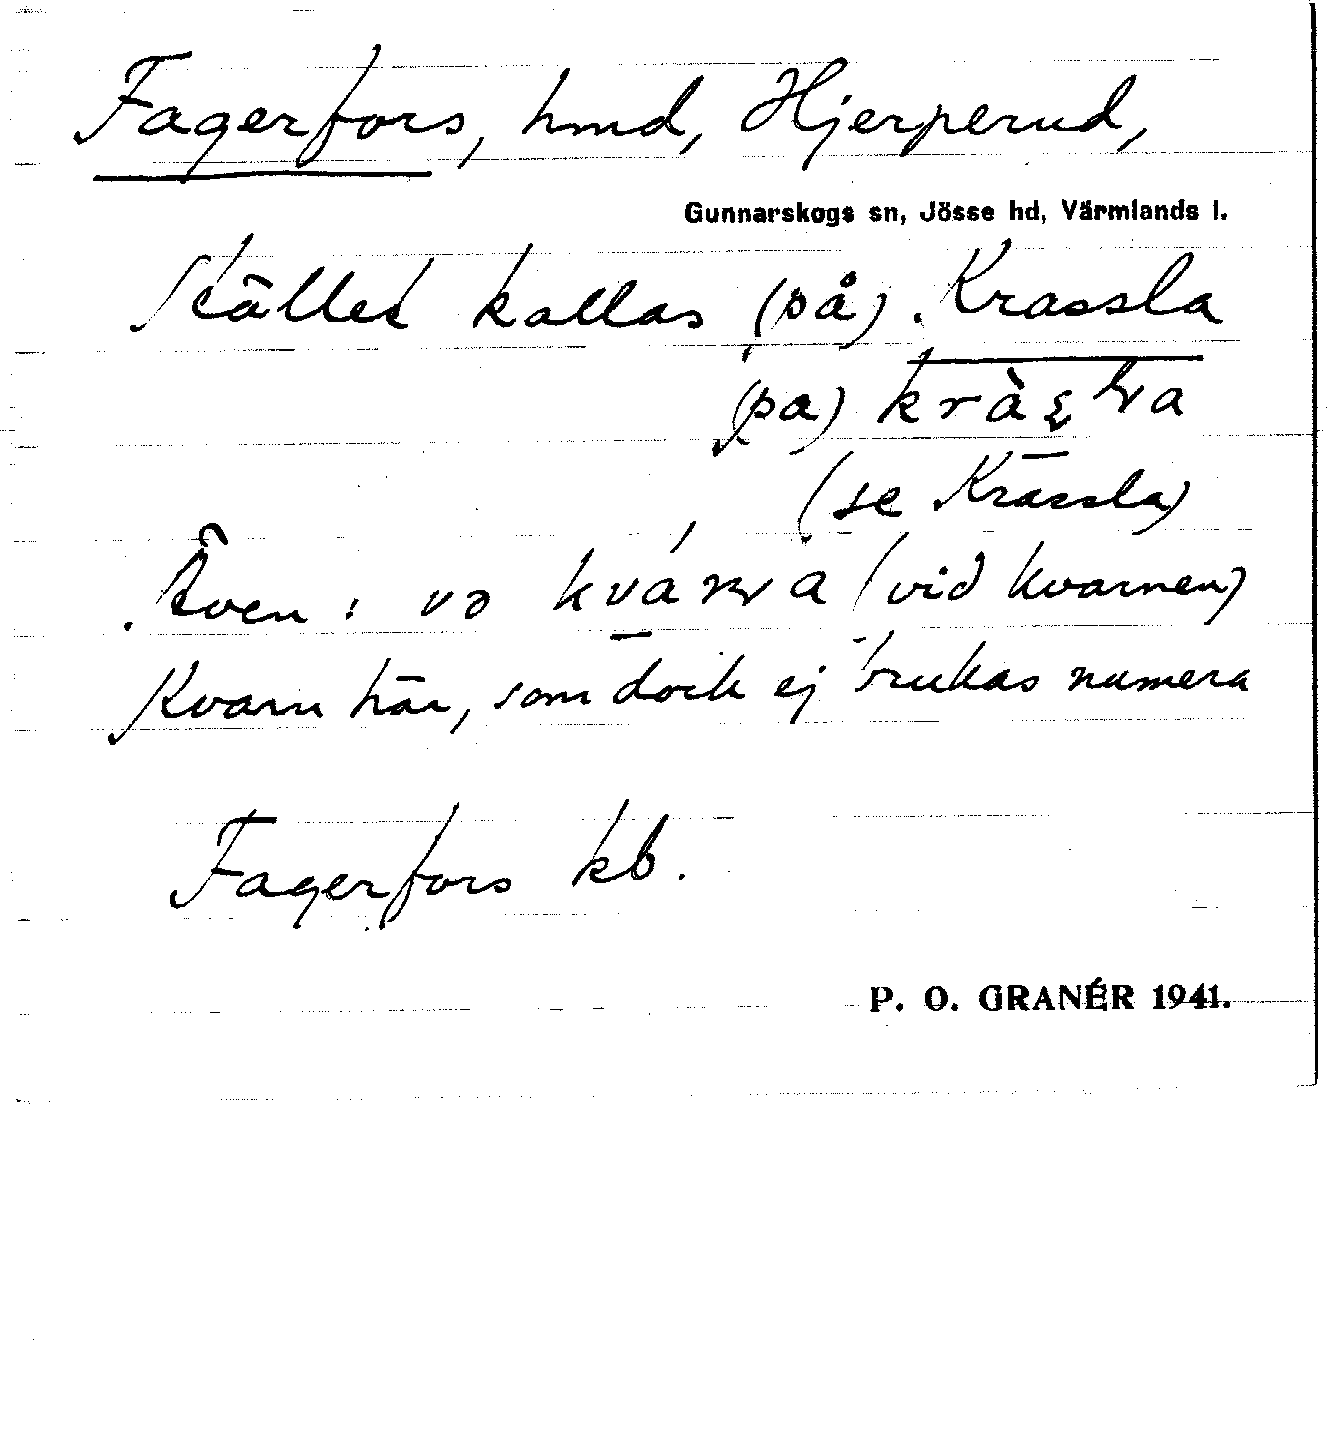 Fagerfors, hmd, Hjerperud,
Gunnarskogs sn, Jösse hd, Värmlands l.
Stället kallas (på) Krassla
(pa)
(se Krassla)
Även: və (vid kvarnen)
Kvarn här, som dock ej brukas numera
Fagerfors kb.
P. O. GRANÉR 1941.